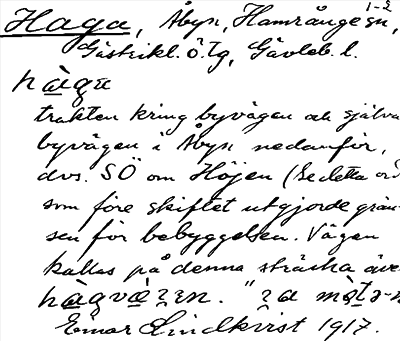 Haga, Åbyn, Hamrånge sn, 1-2
Gästrikl. ö. tg, Gävleb. l.
hàga
trakten kring byvägen och själva
byvägen i Åbyn nedanför,
dvs. SÖ om Höjen (se detta ord
som före skiftet utgjorde grän-
sen för bebyggelsen. Vägen
kallas på denna sträcka även
"
Einar Lindkvist 1917.